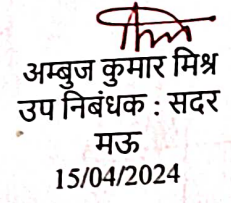 अम्बुज कुमार मिश्र
उप निबंधक : सदर
मऊ
15/04/2024